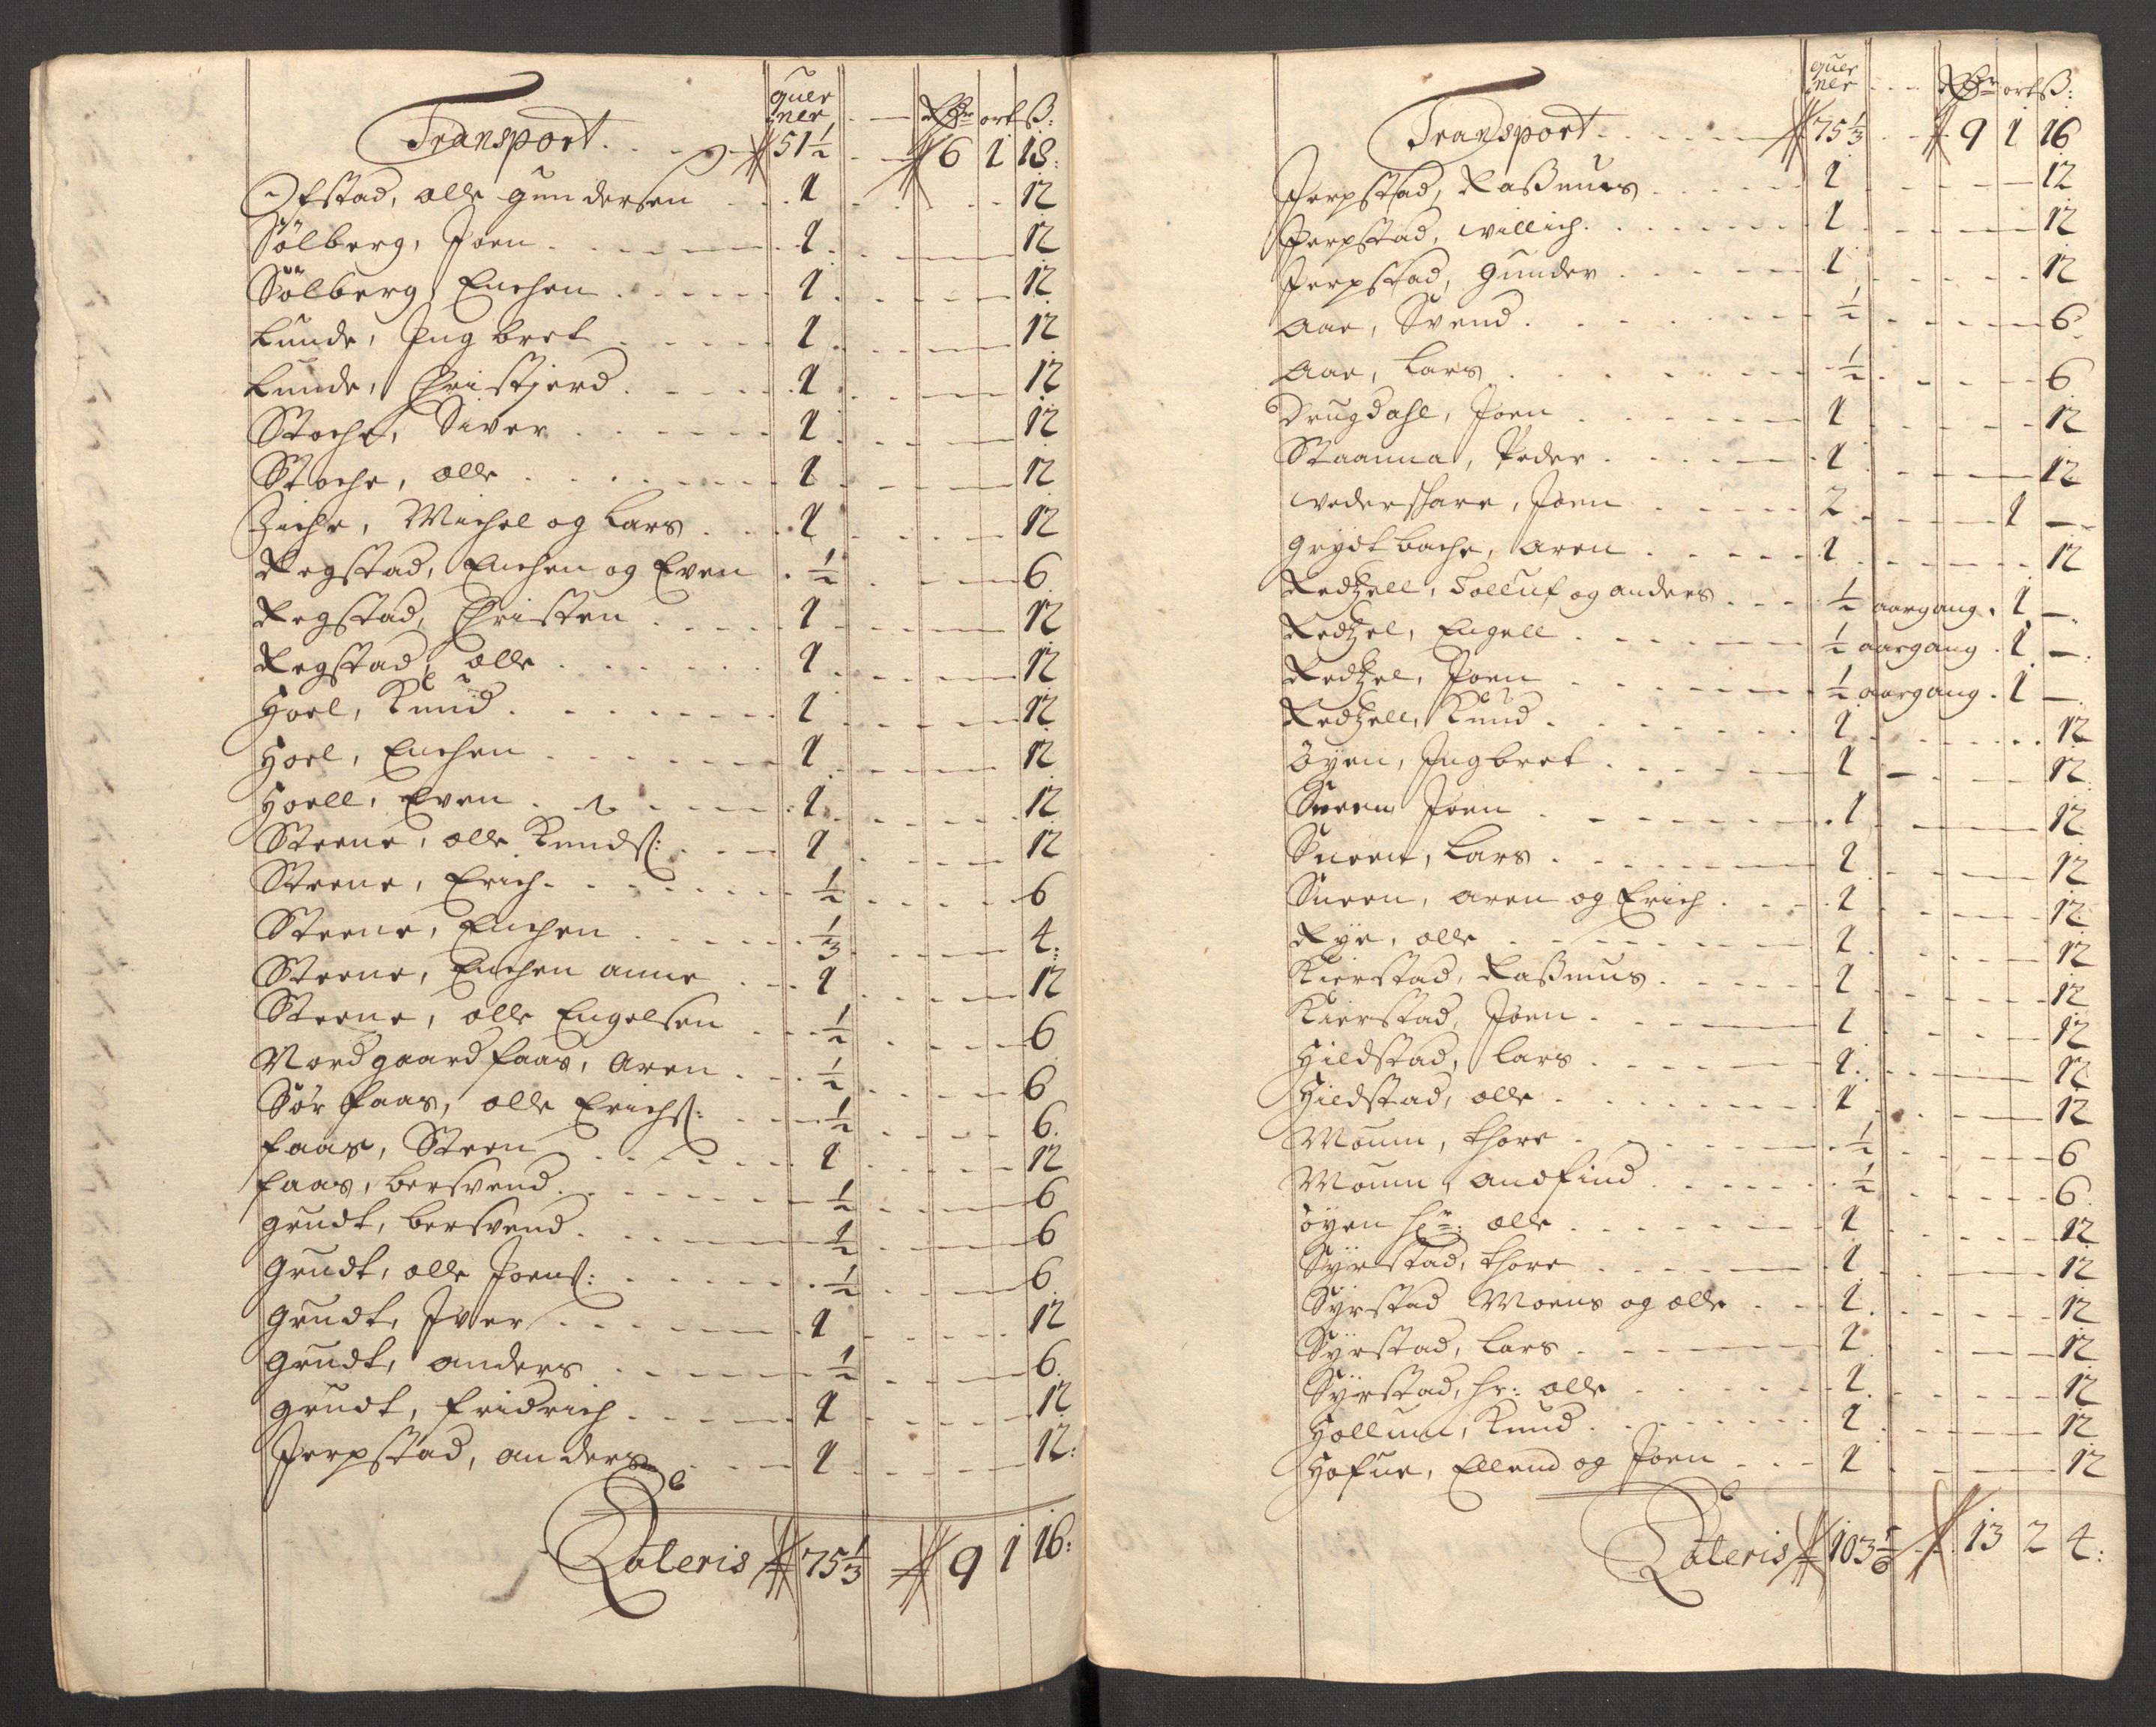 quer
ner Rdr ort ß:
Transport 51½ 6 1 18:
Ofstad, olle gundersen 1 12
Sölberg, Joen 1 12
Sölberg, Enchen 1 12
Lunde, Ingbret 1 12
Lunde, Christjerd 1 12
Stoche, Siver 1 12
Stoche, olle 1 12
Ziche, Michel og Lars 1 12
Regstad, Enchen og Even ½ 6
Regstad, Christen 1 12
Regstad, olle 1 12
Hoel, Knud 1 12
Hoel, Enchen 1 12
Hoell, Even 1 12
Steene, olle Knuds: 1 12
Steene, Erich ½ 6
Steene, Enchen ⅓ 4:
Steene, Enchen anne 1 12
Steene, olle Engelsen ½ 6
Nordgaard faas, Aren ½ 6
Sør faas, olle Erichs: ½ 6
faas, Steen 1 12
faas, bersvend ½ 6
grudt, bersvend ½ 6
Grudt, olle Joens: ½ 6
Grudt, Iver 1 12
Grudt, anders ½ 6
grudt, fridrich 1 12
Jerpstad, anders 1 12:
Lateris 75⅓ 9 1 16:
quer
ner Rdr ort ß:
Transport 75⅓ 9 1 16
Jerpstad, Rassmus 1 12
Jerpstad, willich 1 12
Jerpstad, gunder 1 12
Aae, Svend ½ 6
Aae, Lars ½ 6
Drugdahl, Joen 1 12
Staanna, Peder 1 12
wederhare, Joen 2 1 —
grydtbache, aren 1 12
Redzell, Tolluf og anders ½ aargang 1 —
Redzel, Engell ½ aargang 1 —
Redzel, Joen ½ aargang 1 —
Redzell, Knud 1 12
öyen, Ingbret 1 12
Sneen Joen 1 12
Sneen, Lars 1 12
Sneen, aren og Erich 1 12
Rye, olle 1 12
Kierstad, Rassmus 1 12
Kierstad, Joen 1 12
Hildstad, Lars 1 12
Hildstad, olle 1 12
Moum, thore ½ 6
Moum, andfind ½ 6
öyen hr: olle 1 12
Syrstad, thore 1 12
Syrstad Moens og olle 1 12
Syrstad, Lars 1 12
Syrstad, hr: olle 1 12
Hollum, Knud 1 12
Hofue, Ellend og Joen 1 12
Lateris 103⅚ 13 2 4: